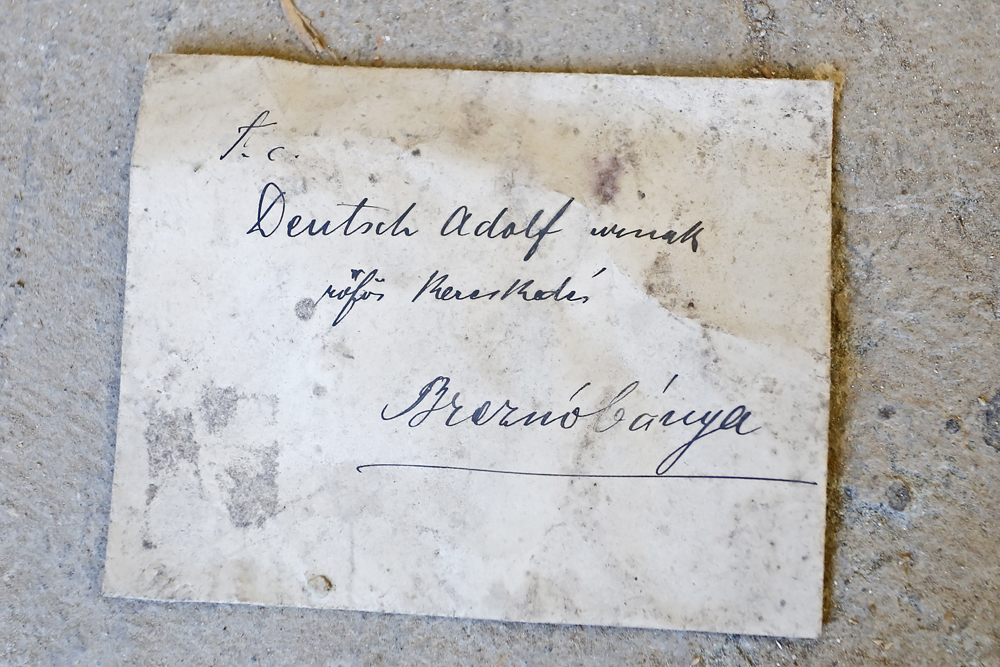 T. c.
Deutsch Adolf urnak
rőfös kereskedés
Breznóbánya